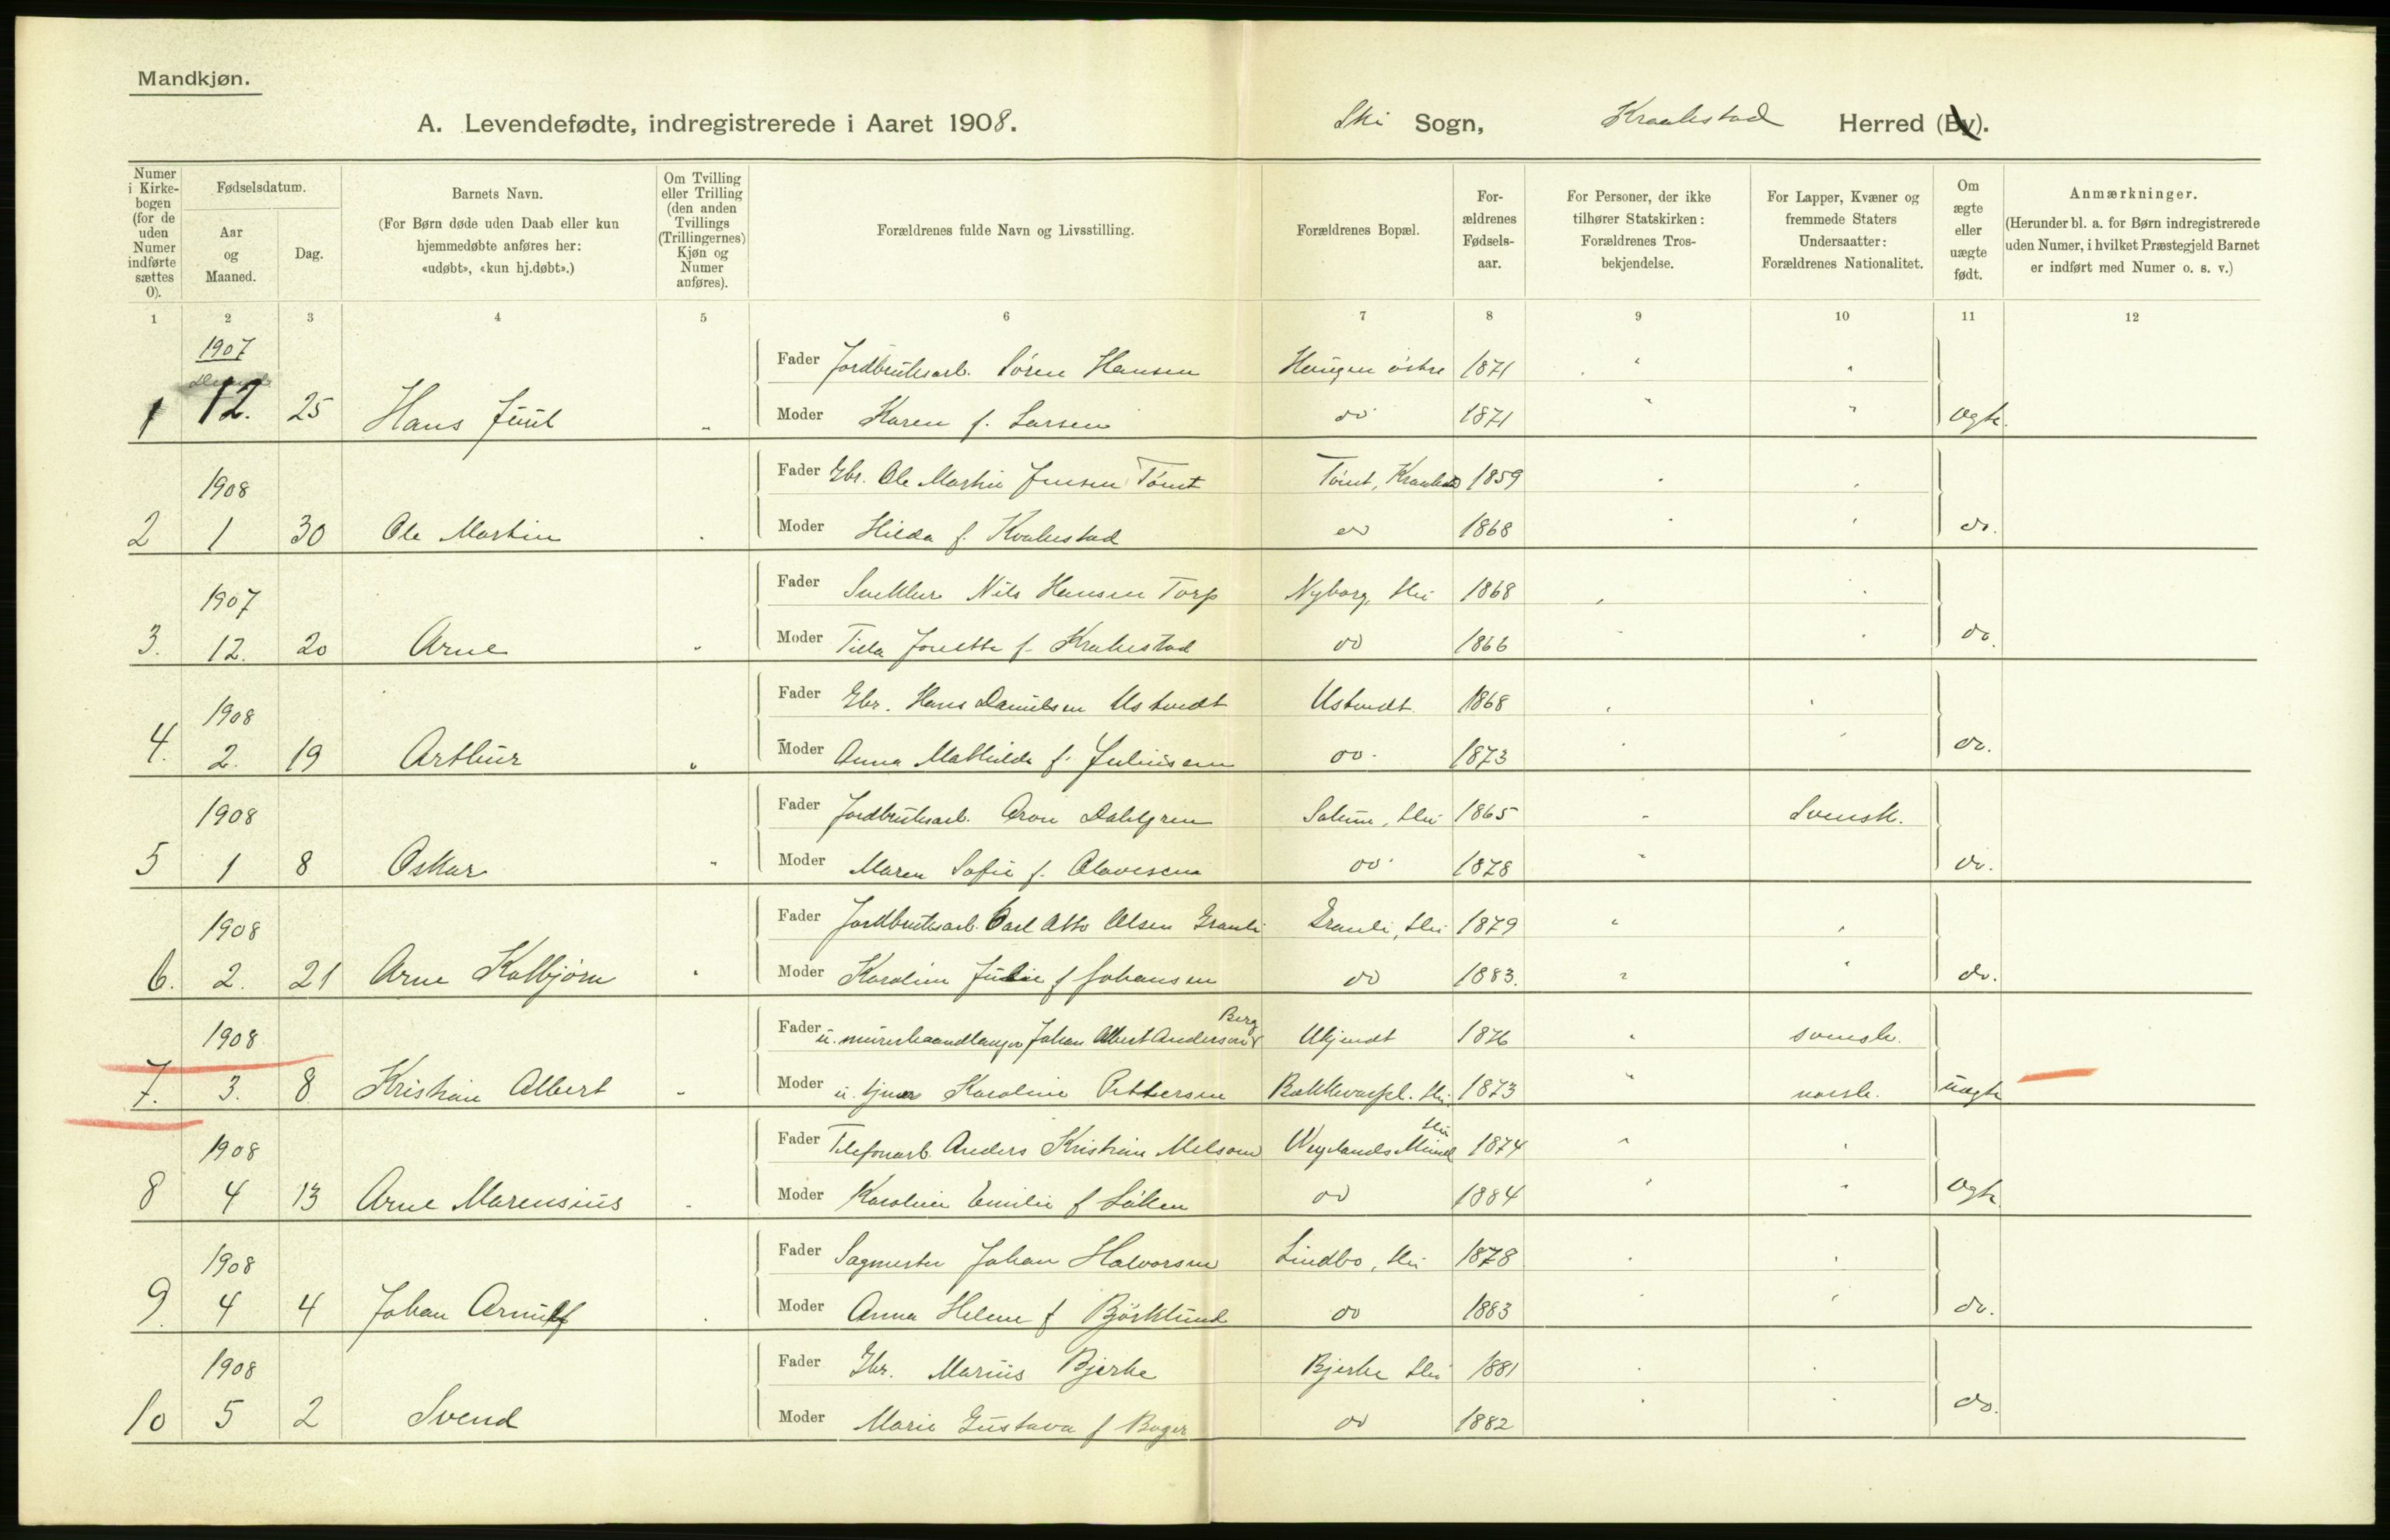 Mandkjøn.
A. Levendefødte, indregistrerede i Aaret 1908.
Ski Sogn, Kraakstad Herred (By).
Numer i Kirkebogen (for de uden Numer indførte sættes 0).
Fødselsdatum.
Aar og Maaned.
Dag.
Barnets Navn.
(For Børn døde uden Daab eller kun hjemmedøbte anføres her: «udøbt», «kun hj.døbt».)
Om Tvilling eller Trilling (den anden Tvillings (Trillingernes) Kjøn og Numer anføres).
Forældrenes fulde Navn og Livsstilling.
Forældrenes Bopæl.
Forældrenes Fødselsaar.
For Personer, der ikke tilhører Statskirken: Forældrenes Trosbekjendelse.
For Lapper, Kvæner og fremmede Staters Undersaatter: Forældrenes Nationalitet.
Om ægte eller uægte født.
Anmærkninger.
(Herunder bl. a. for Børn indregistrerede uden Numer, i hvilket Præstegjeld Barnet er indført med Numer o. s. v.)
1 2 3 4 5 6 7 8 9 10 11 12
1907
Fader Jordbruksarb. Søren Hansen Haugen østre 1871 " "
1 12. 25 Hans Juul " Moder Karen f. Larsen do 1871 " " Ægte.
1908
Fader Gbr. Ole Martin Jensen Tømt Tømt, Kraakstad 1859
2 1 30 Ole Martin Moder Hilda f. Kraakestad do 1868 do.
1907
Fader Snekker Nils Hansen Torp Nyborg, Ski 1868
3. 12. 20 Arne " Moder Tilla Josette f. Krakestad do 1866 do.
1908
Fader Gbr. Hans Danielsen Ustvedt Ustvedt 1868
4. 2. 19 Arthur " Moder Anna Mathilde f. Juliusen do. 1873 do.
1908
Fader Jordbruksarb. Aron Dahlgren Ski 1865 " Svensk.
5 1 8 Oskar " Moder Maren Sofie f. Olavesen do. 1878 " do.
1908
Fader Jordbruksarb. Carl Otto Olsen Granli Granli, Ski 1879 "
6. 2. 21 Arne Kolbjørn " Moder Karoline Julie f Johansen do 1883. " " do.
1908
Fader u. murerhaandlanger Johan Albert Anderson Berg Ukjendt 1876 " svensk.
7. 3. 8 Kristian Albert " Moder u. tjener Karoline Pettersen Bakkevarpl. Ski 1873 " norsk. uægte
1908
Fader Telefonarb. Anders Kristian Melsom Wegelands Minde Ski 1874 "
8 4 13 Arne Marensius Moder Karoline Emilie f Løken do 1884 " Ægte
1908
Fader Sagmester Johan Halvorsen Lindbo, Ski 1878
9. 4 4 Johan Arnulf Moder Anna Helene f Björklund do 1883 do.
1908
Fader Gbr. Marius Bjerke Bjerke Ski 1881
10 5 2 Svend Moder Marie Gustava f Boger do 1882 do.